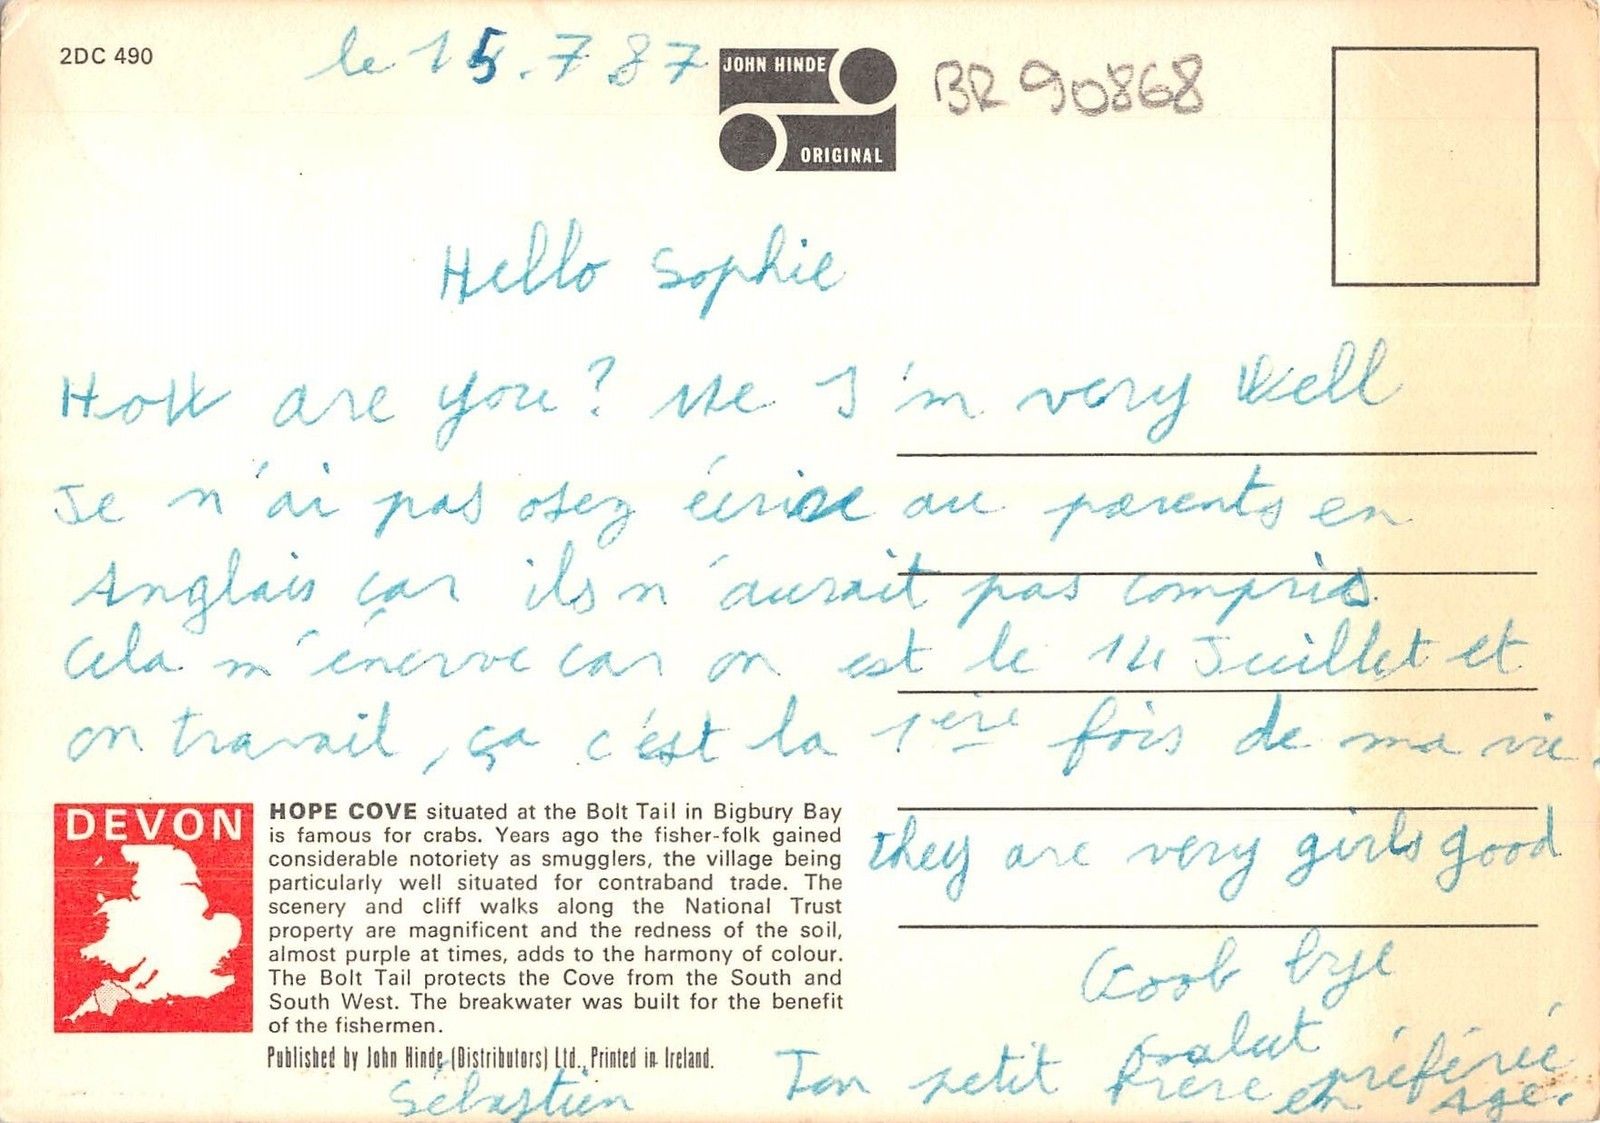 2DC 490
le 15.7 87
JOHN HINDE
ORIGINAL
BR 90868
Hello Sophie
How are you? Me I'm very Well
Je n'ai pas osez écrire au parents en
Anglais car ils n'aurait pas compris.
Cela m'énerve car on est le 14 Juillet et
on travail, ça c'est la 1ère fois de ma vie.
they are very girls good
Goob bye
salut
Ton petit frère préférée
en age.
Sébastien
DEVON
HOPE COVE situated at the Bolt Tail in Bigbury Bay
is famous for crabs. Years ago the fisher-folk gained
considerable notoriety as smugglers, the village being
particularly well situated for contraband trade. The
scenery and cliff walks along the National Trust
property are magnificent and the redness of the soil,
almost purple at times, adds to the harmony of colour.
The Bolt Tail protects the Cove from the South and
South West. The breakwater was built for the benefit
of the fishermen.
Published by John Hinde (Distributors) Ltd., Printed in Ireland.